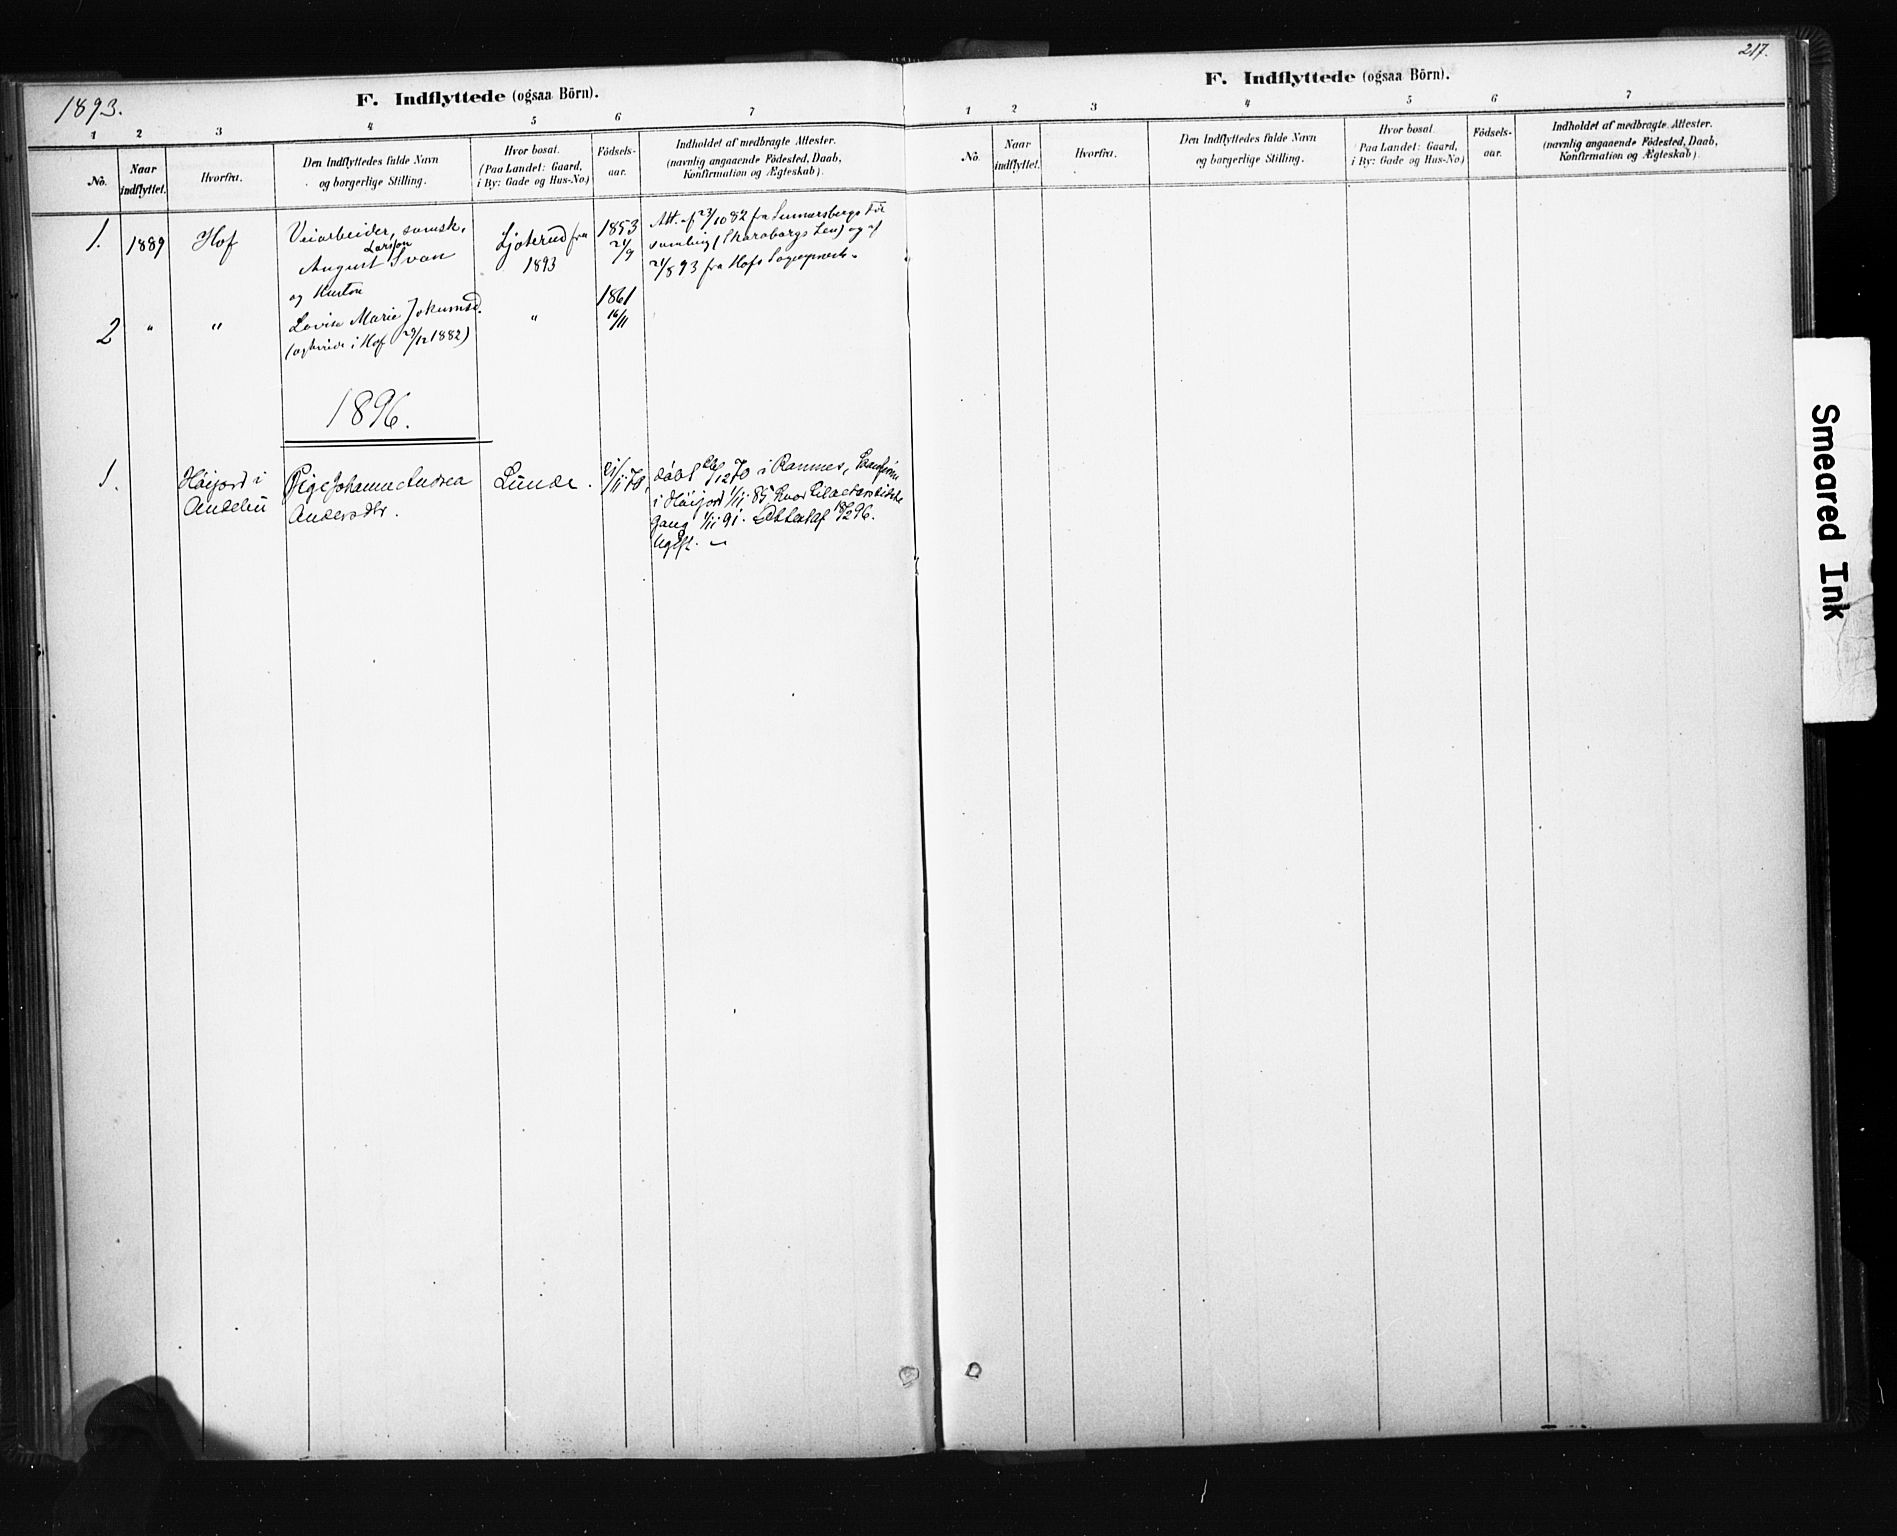 217.
1893.
F. Indflyttede (ogsaa Börn).
1 2 3 4 5 6 7
No.
Naar indflyttet.
Hvorfra.
Den Indflyttedes fulde Navn
og borgerlige Stilling.
Hvor bosat.
(Paa Landet: Gaard,
i By: Gade og Hus-No.)
Födsels-
aar.
Indholdet af medbragte Attester.
(navnlig angaaende Födested, Daab,
Konfirmation og Ægteskab).
1. 1889 Hof
Veiarbeider, svensk,
Larsson
August Svan
og Hustru
Ljøterud fra
1893
1853
21/9
Att. af 23/10 82 fra
samling (Skaraborgs Len) og af
21/8 93 fra Hofs Sognepræst.
2 " "
Lovise Marie Jokumsd.
(ægtevide i Hof 29/12 1882)
"
1861
16/11
1896.
1.
Høijord i
Andebu
Pige Johanne Andrea
Andersdtr.
Lunde.
døbt 26/12 70 i Ramnes, Konfirm
i Høijord 1/11 85, hvor til
Gang 1/11 91. Attest af 18/2 96.
Ugift. —
F. Indflyttede (ogsaa Börn).
1 2 3 4 5 6 7
No.
Naar
indflyttet.
Hvorfra.
Den Indflyttedes fulde Navn
og borgerlige Stilling.
Hvor bosat.
(Paa Landet: Gaard,
i By: Gade og Hus-No.)
Födsels-
aar.
Indholdet af medbragte Attester.
(navnlig angaaende Födested, Daab,
Konfirmation og Ægteskab).
Smeared Ink